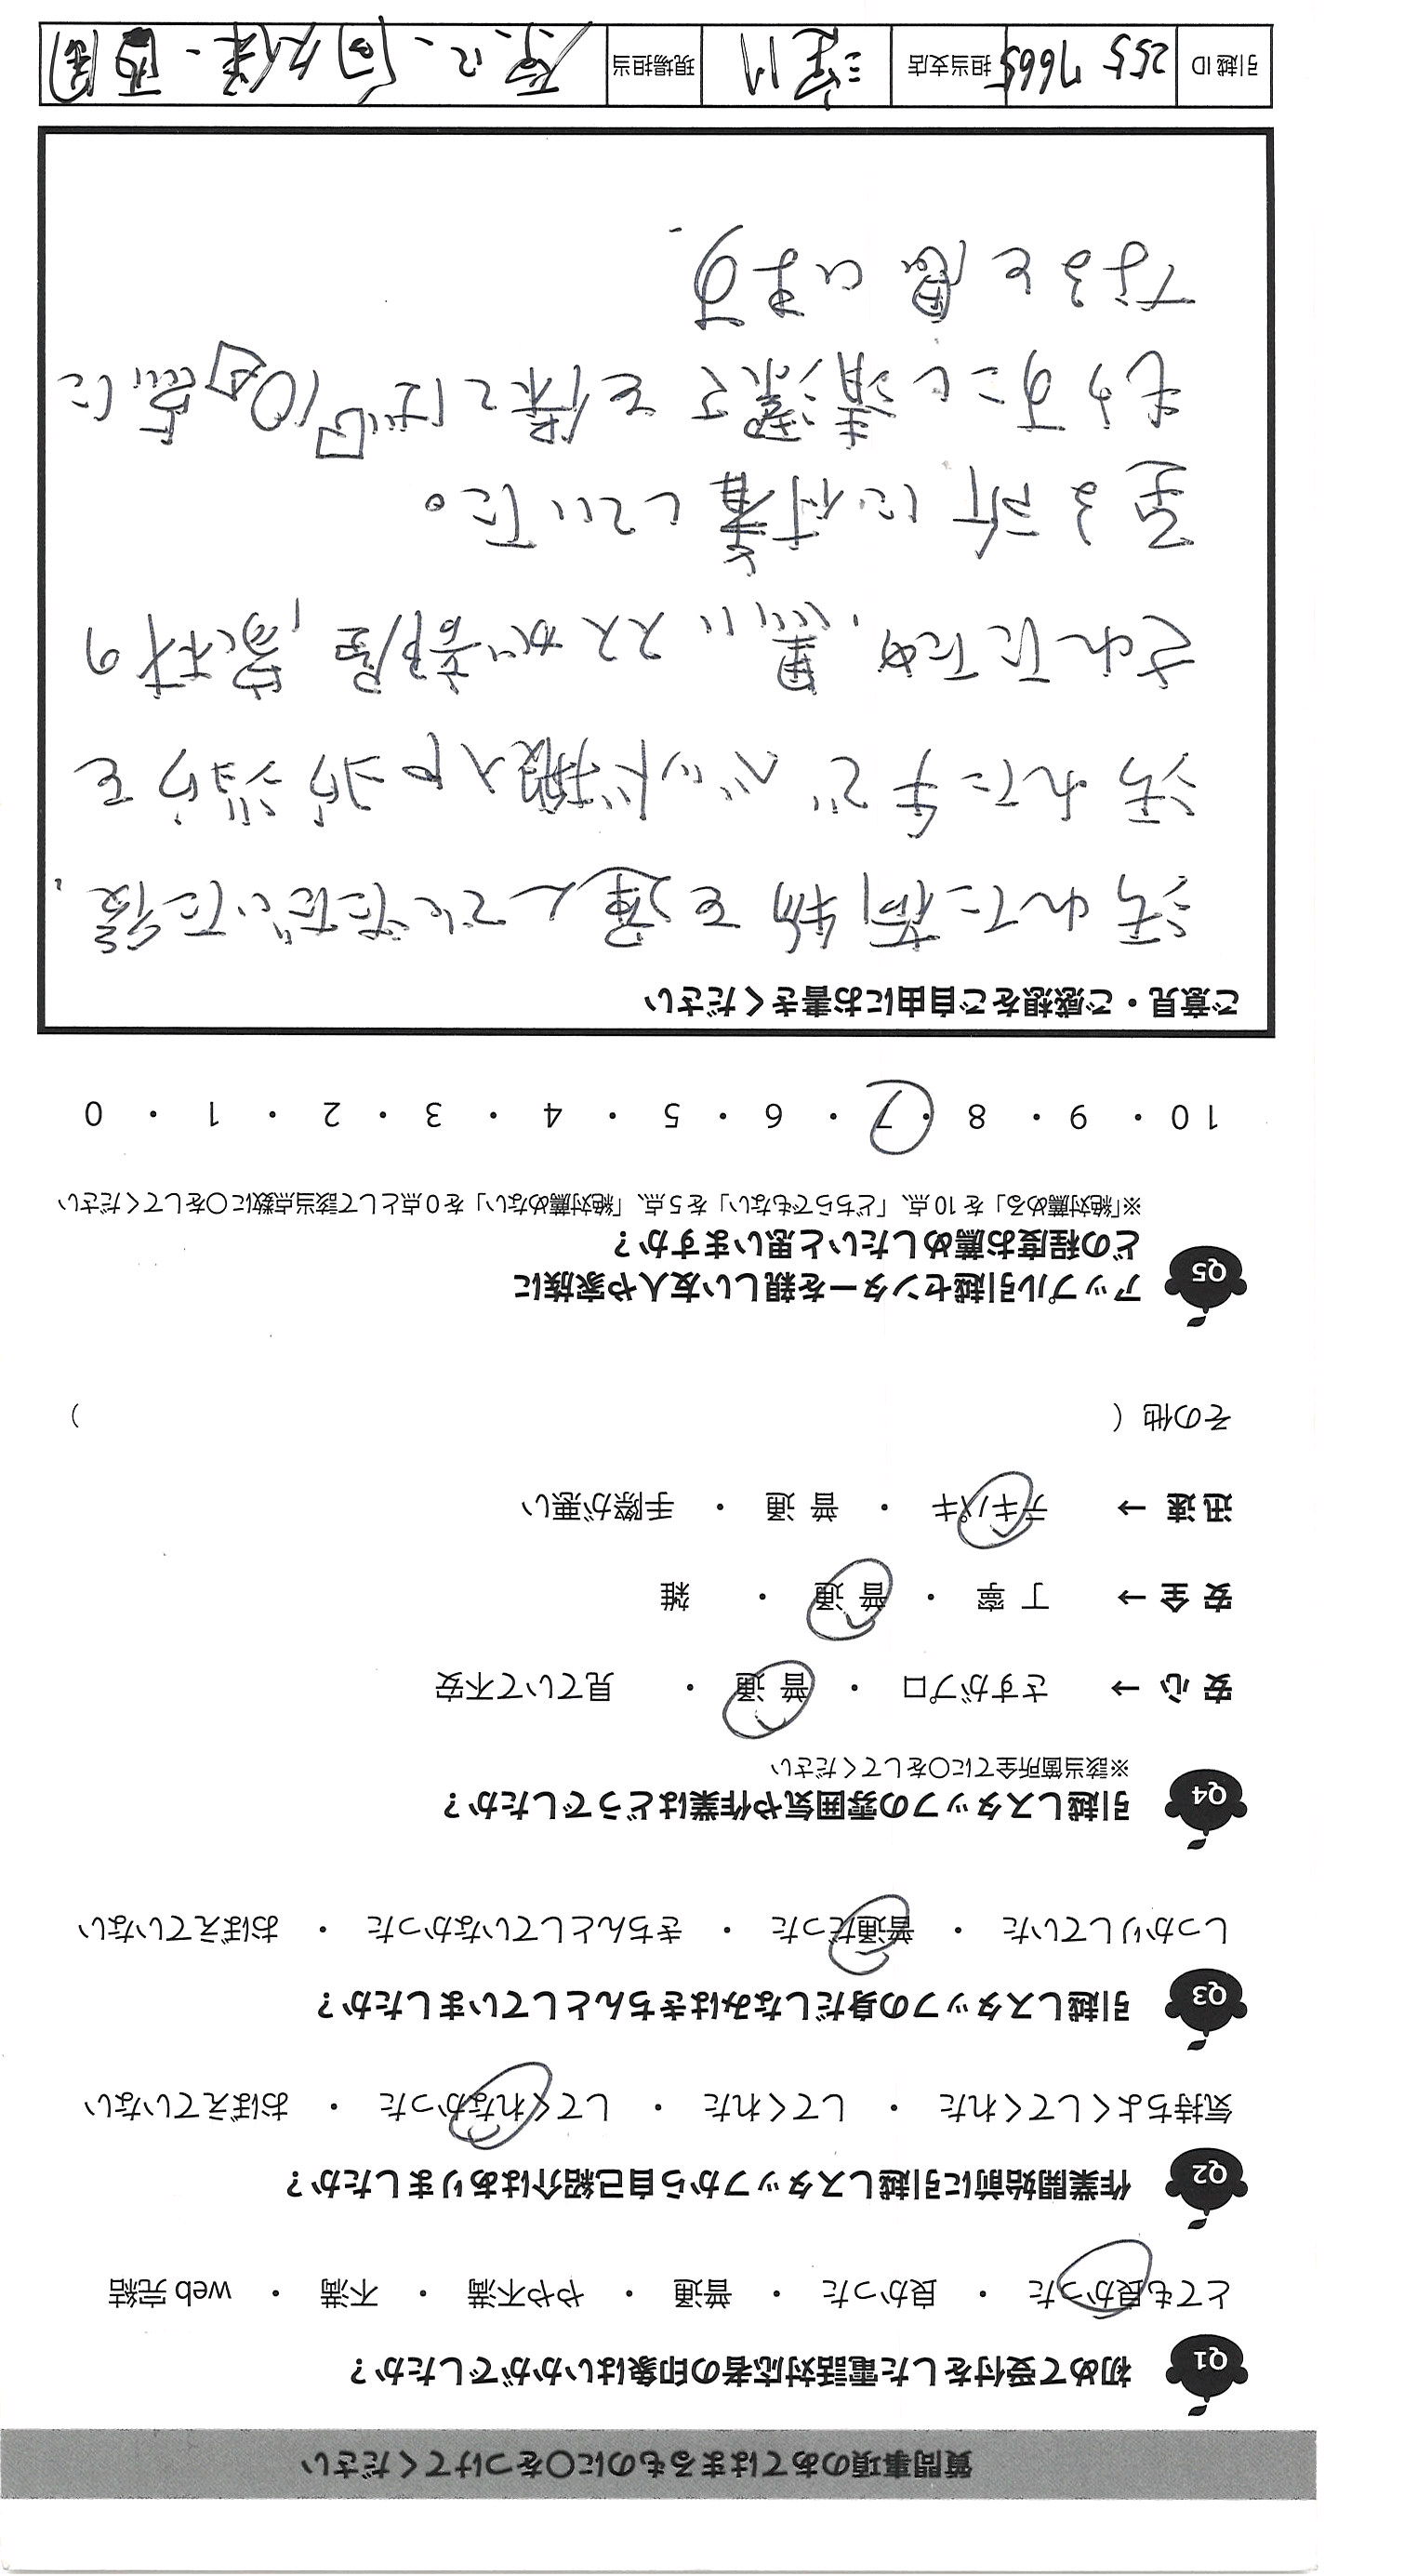 質問事項のあてはまるものに〇をつけてください
Q1 初めて受付をした電話対応者の印象はいかがでしたか？
とても良かった ・ 良かった ・ 普通 ・ やや不満 ・ 不満 ・ web 完結
Q2 作業開始前に引越しスタッフから自己紹介はありましたか？
気持ちよくしてくれた ・ してくれた ・ してくれなかった ・ おぼえていない
Q3 引越しスタッフの身だしなみはきちんとしていましたか？
しっかりしていた ・ 普通だった ・ きちんとしていなかった ・ おぼえていない
Q4 引越しスタッフの雰囲気や作業はどうでしたか？
※該当箇所全てに〇をしてください
安 心 → さすがプロ ・ 普 通 ・ 見ていて不安
安 全 → 丁 寧 ・ 普 通 ・ 雑
迅 速 → テキパキ ・ 普 通 ・ 手際が悪い
その他 ( )
Q5 アップル引越センターを親しい友人や家族に
どの程度お薦めしたいと思いますか？
※「絶対薦める」を 10 点、「どちらでもない」を 5 点、「絶対薦めない」を 0 点として該当点数に〇をしてください
10 ・ 9 ・ 8 ・ 7 ・ 6 ・ 5 ・ 4 ・ 3 ・ 2 ・ 1 ・ 0
ご意見・ご感想をご自由にお書きください
汚れた荷物を運んでいただいた後、
汚れた手でベッド搬入や
されたため、黒いススが部屋、家材の
至る所に付着していた。
もう少し清潔さを保てば 10点に
なると思います。
引越 ID 255 7665 担当支店 現場担当